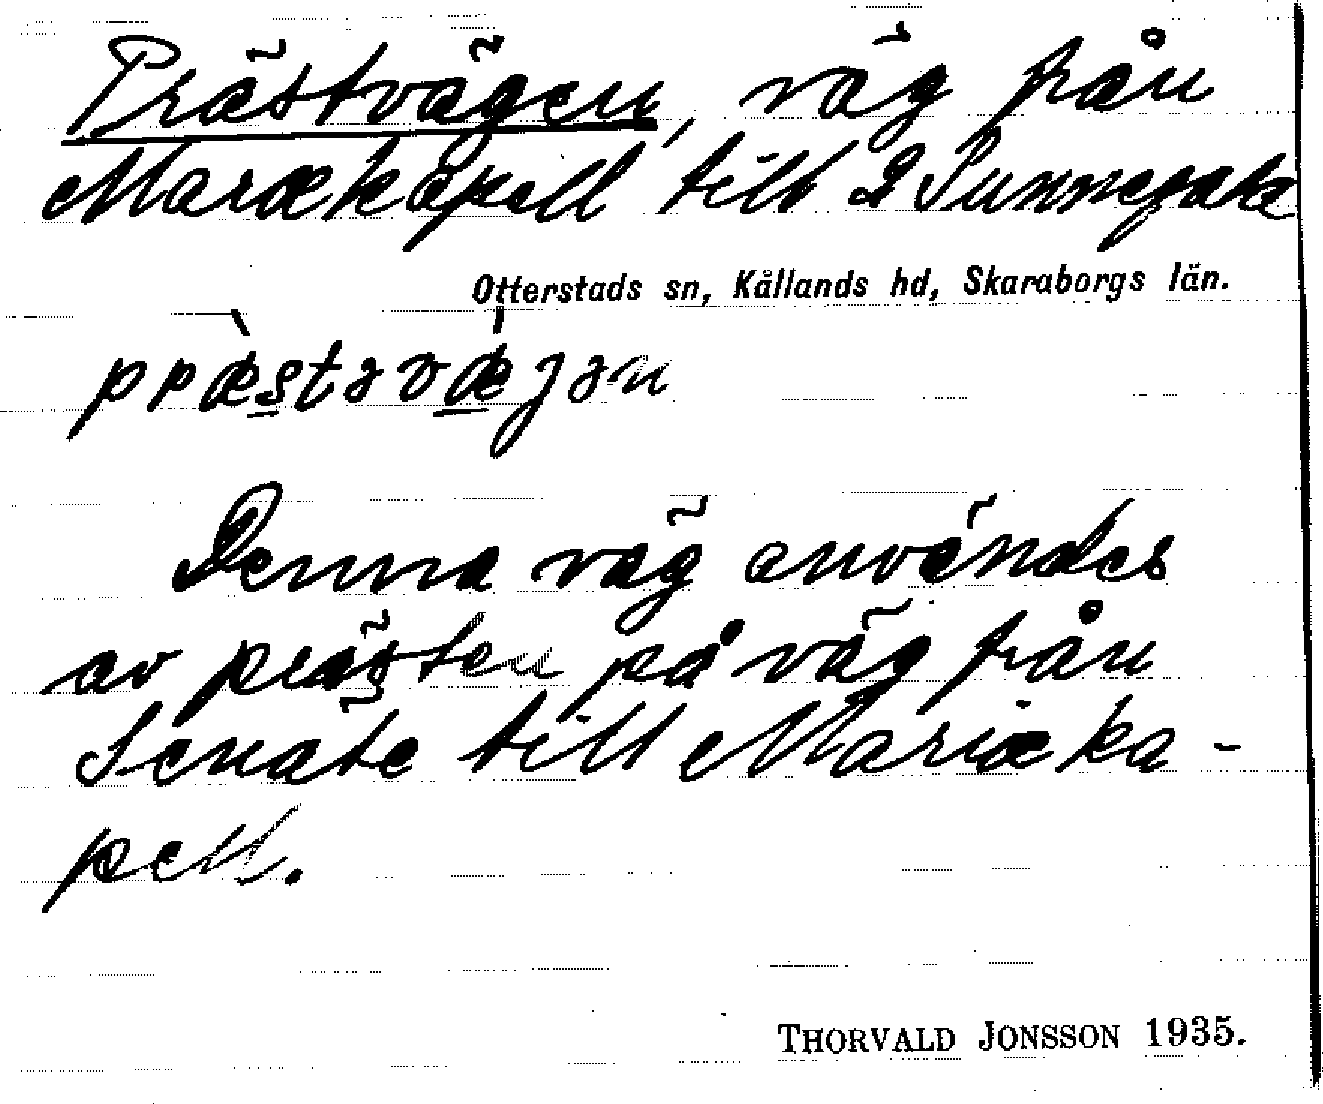 Prästvägen, väg från
Mariækapell till
Otterstads sn, Kållands hd, Skaraborgs län.
præstəvæjən
Denna väg användes
av prästen på väg från
Senäte till Mariæka-
pell.
THORVALD JONSSON 1935.